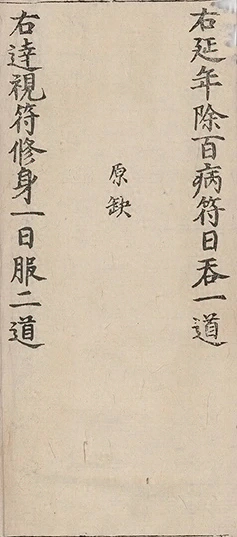 右延年除百病符日吞一道
原缺
右達視符修身一日服二道